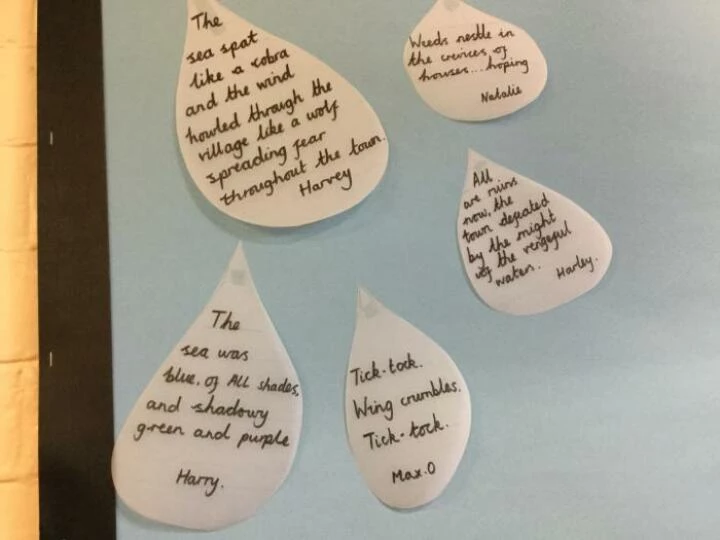 The
sea spat
like a cobra
and the wind
howled through the
village like a wolf
spreading fear
throughout the town.
Harvey
Weeds nestle in
the crevices of
houses...hoping
Natalie
All
are ruins
now, the
town defeated
by the might
of the vengeful
water.
Harley.
The
sea was
blue, of ALL shades,
and shadowy
green and purple
Harry.
Tick-tock.
Wring crumbles.
Tick-tock.
Max.O